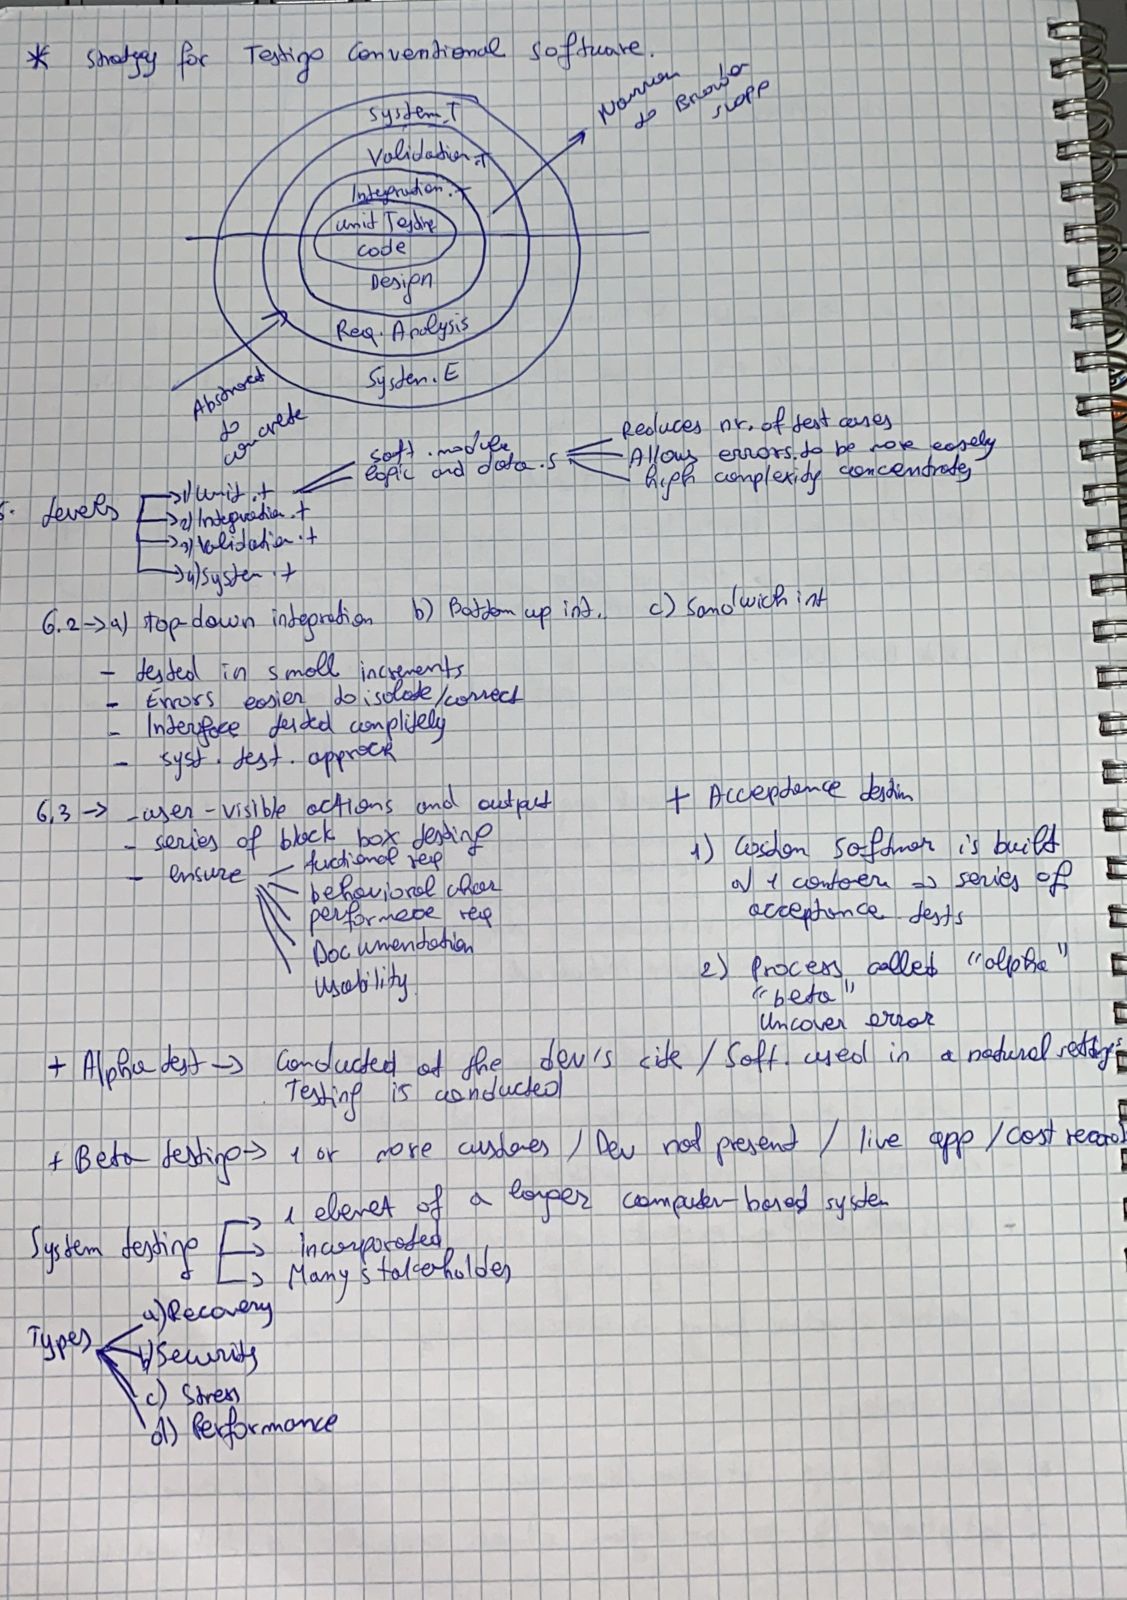 * Strategy for Testing Conventional Software.
Narrow
to Broader
scope
System.T
Validation.T
Integration.T
unit Testing
code
Design
Req. Analysis
System.E
Abstract
to
concrete
Reduces nr. of test cases
soft. module
Allows errors to be more easely
logic and data.s
high complexity concentrates
6. Levels
1) Unit.t
2) Integration.t
3) Validation.t
4) System.t
6.2 -> a) top-down integration b) Bottom up int. c) Sandwich int
- tested in small increments
- Errors easier to isolate/correct
- Interface tested complitely
- syst. test. approck
6.3 -> - user-visible actions and output
- series of black box testing
- ensure
fuctional req
behavioral char
performece req
Documentation
Usability
+ Acceptance testin
1) Custom Softwar is built
1 => series of
acceptance tests
2) Process called "alpha"
"beta"
Uncover error
+ Alpha test -> Conducted at the dev's cite / Soft. used in a natural settings
Testing is conducted
+ Beta testing -> 1 or more customes / Dev not present / live app / Cost record
System testing
1 elemet of a larger computer-based system
incorporated
Many stakeholdes
Types
a) Recovery
b) Security
c) Stress
d) Performance